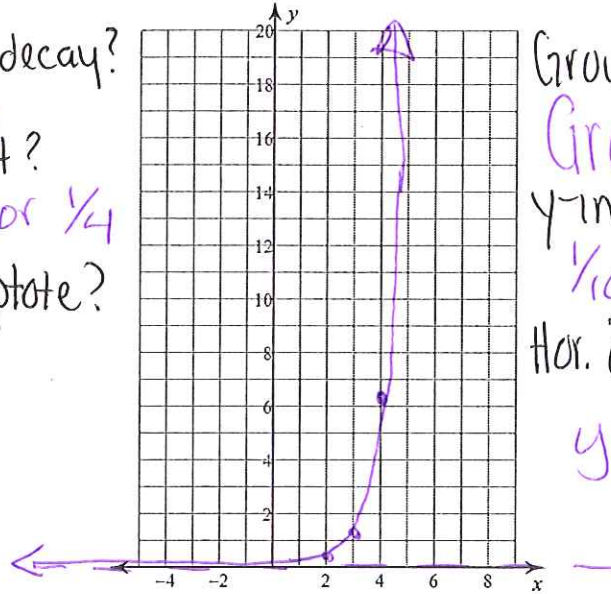 decay?
t?
or 1/4
ptote?
y
20
18
16
14
12
10
8
6
4
2
-4 -2 2 4 6 8 x
Grow
Gr
y-in
1/10
Hor.
y